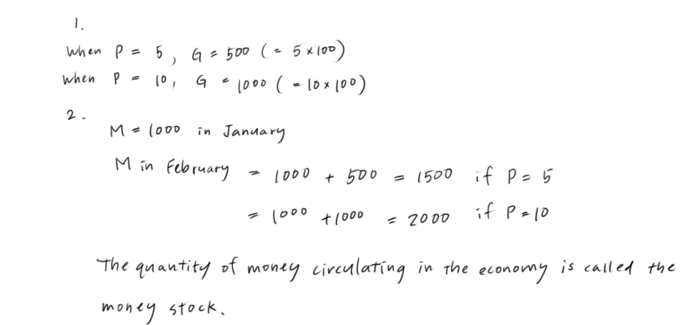 1.
When P = 5, G = 500 (= 5×100)
When P = 10, G = 1000 (= 10×100)
2.
M = 1000 in January
M in February = 1000 + 500 = 1500 if P = 5
= 1000 + 1000 = 2000 if P = 10
The quantity of money circulating in the economy is called the
money stock.